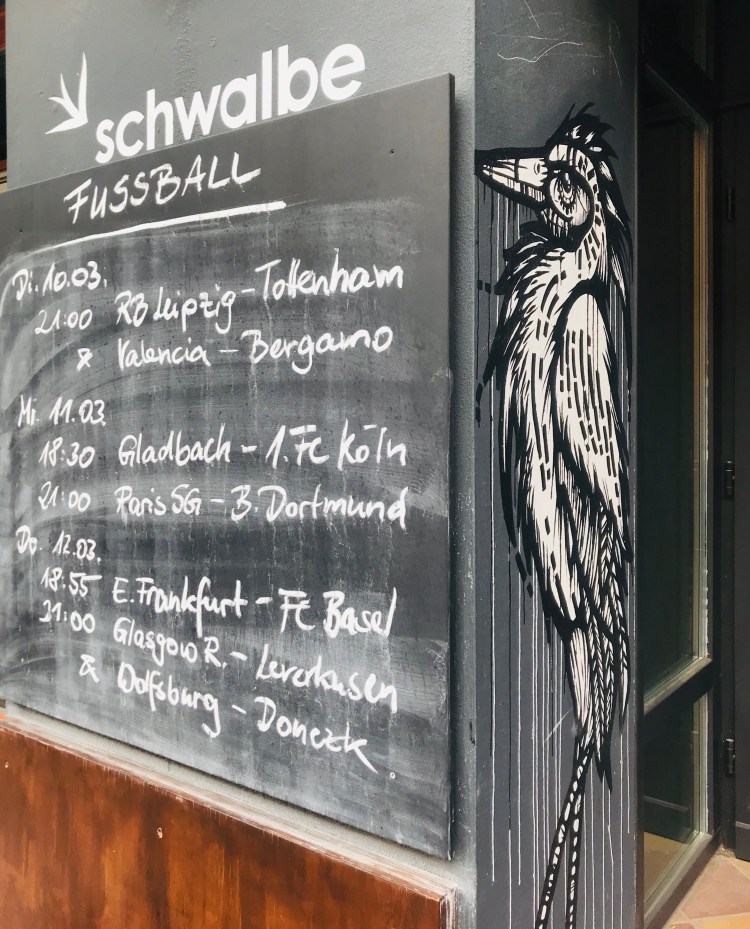 schwalbe
FUSSBALL
Di. 10.03.
21:00 RB Leipzig - Tottenham
& Valencia - Bergamo
Mi. 11.03.
18:30 Gladbach - 1. Fc Köln
21:00 Paris SG - B. Dortmund
Do. 12.03.
18:55 E. Frankfurt - Fc Basel
21:00 Glasgow R. - Leverkusen
& Wolfsburg - Donezk.